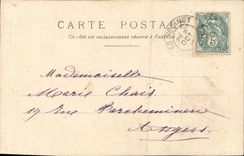 CARTE POSTALE
Ce côté est exclusivement réservé à l'adresse
Mademoiselle
Marie Chais
19 Rue Parcheminerie
Angers
5